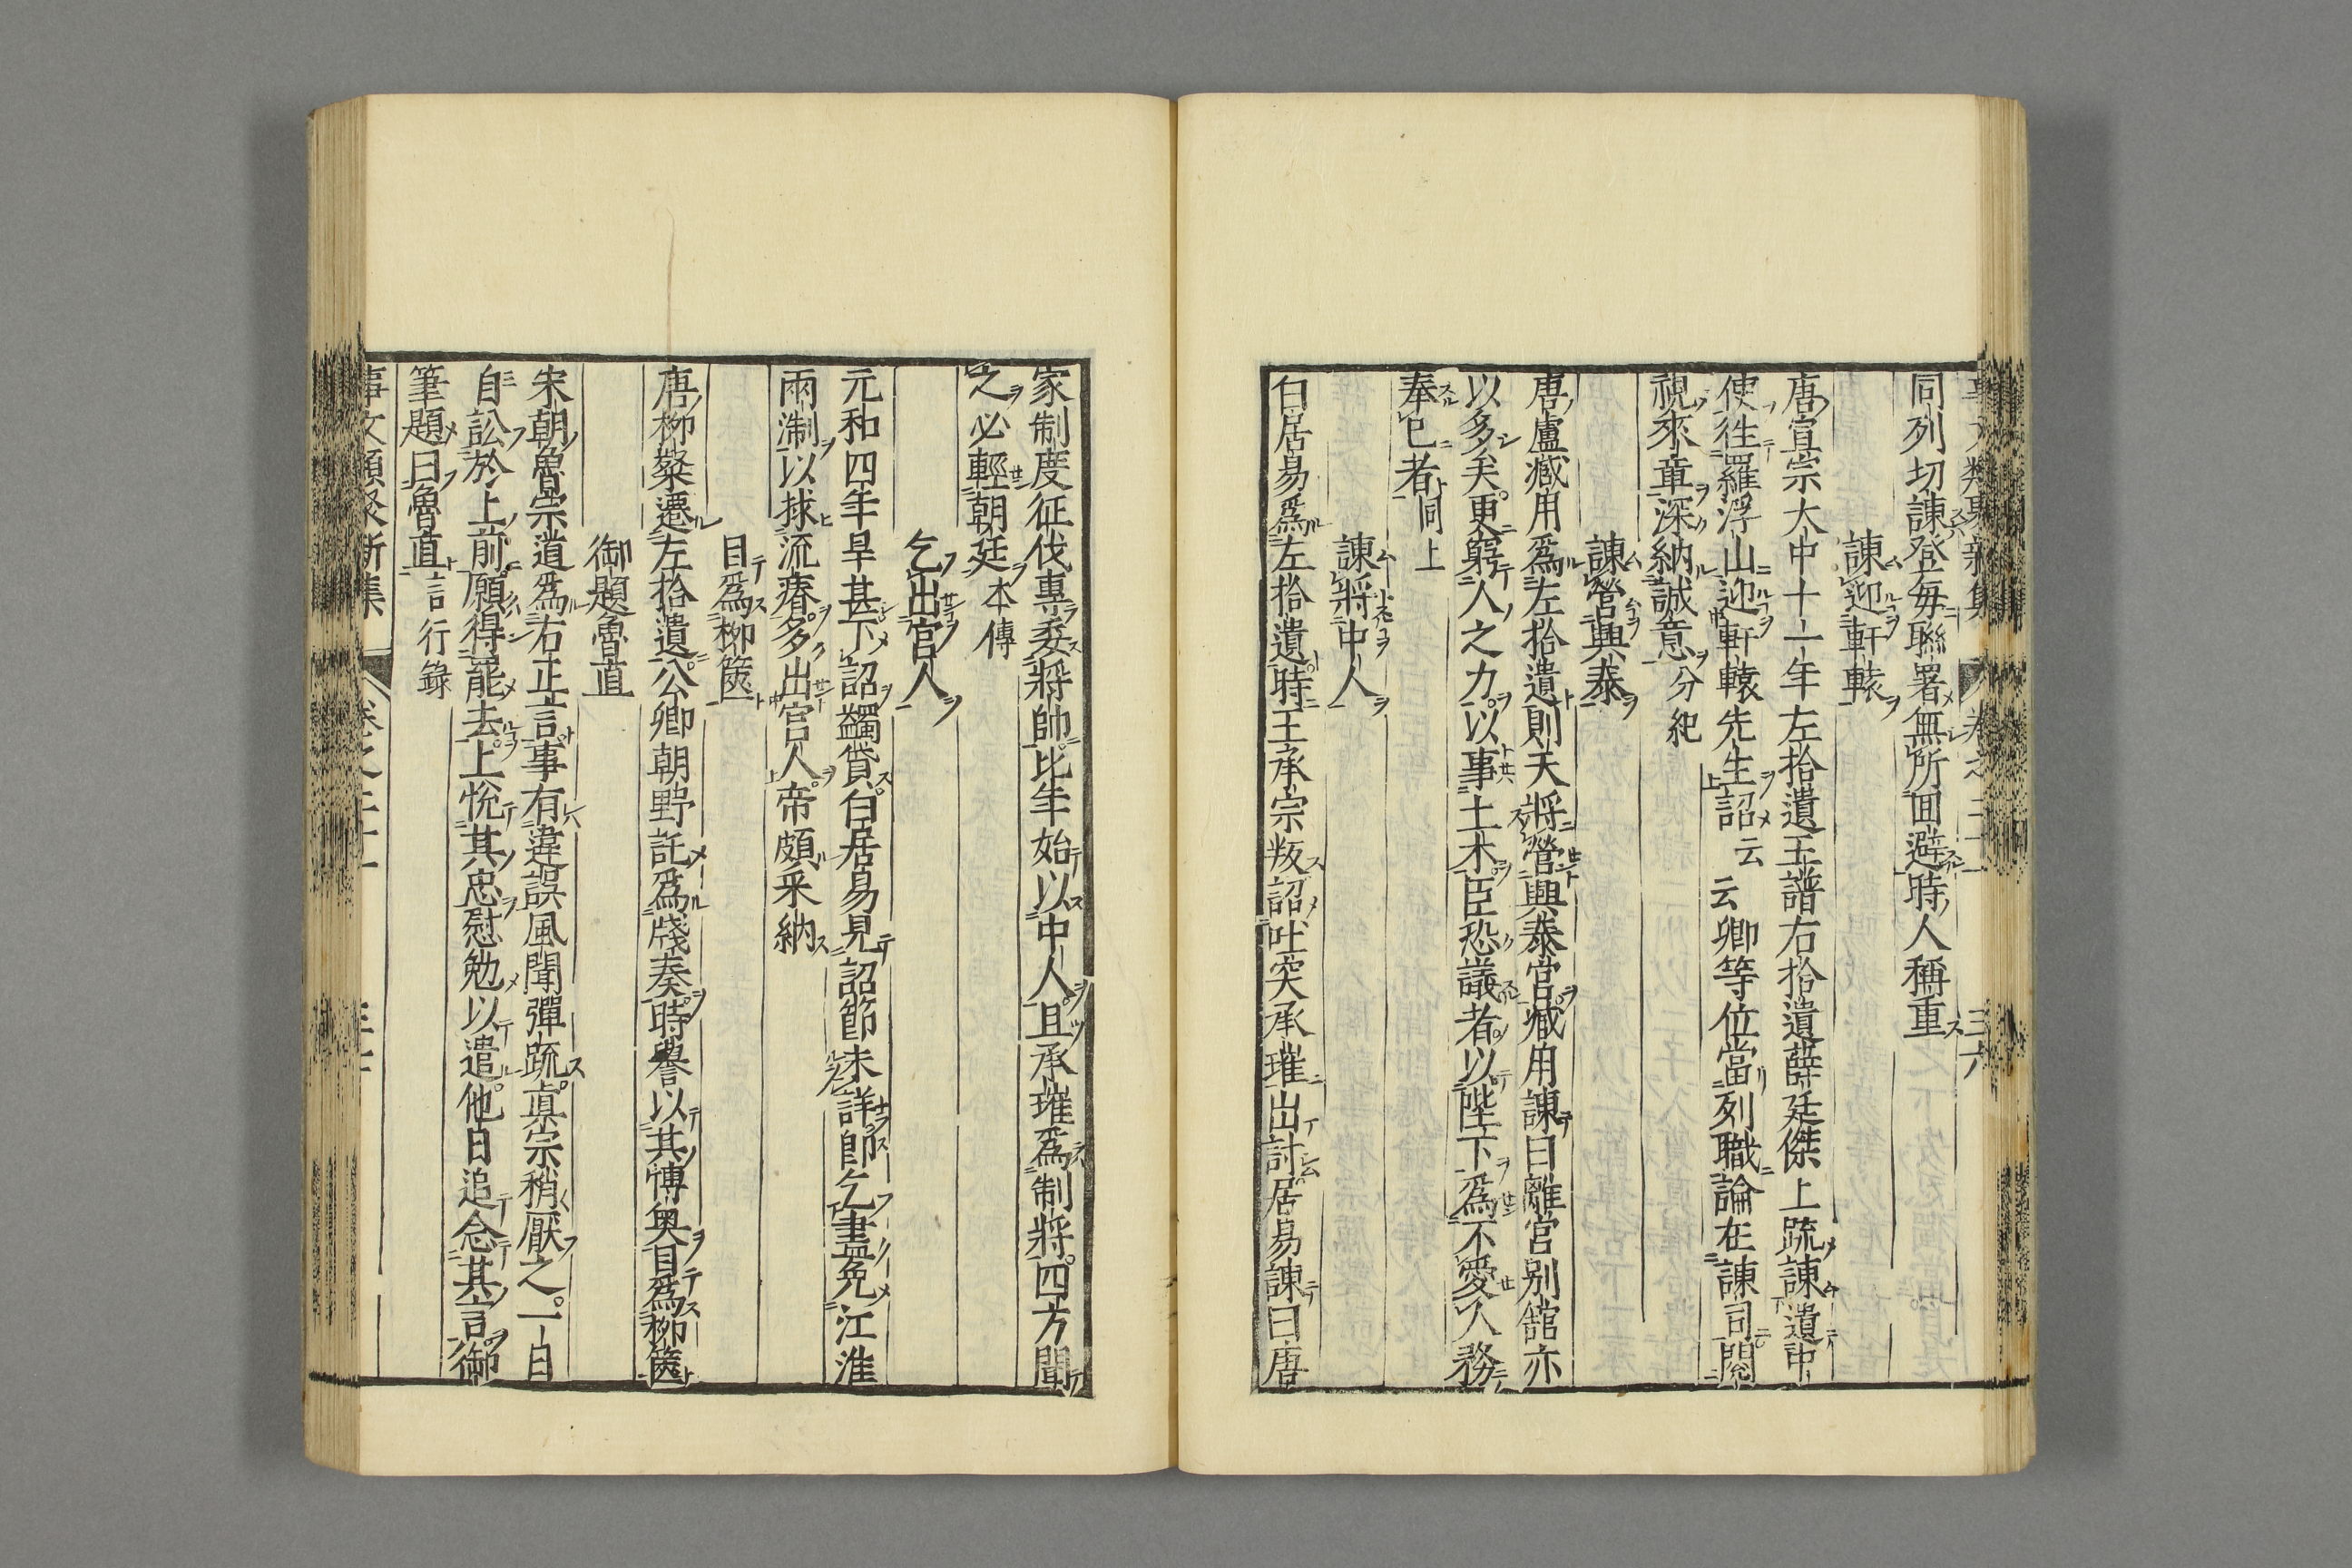 同列切諫登每聯署無所回避時人稱重
諫迎軒轅
唐宣宗大中十一年左拾遺王譜右拾遺薛廷傑上疏諫遣中
使往羅浮山迎軒轅先生詔云云卿等位當列職論在諫司閱
視來章深納誠意分紀
諫營興泰
唐盧臧用爲左拾遺則天將營興泰宮臧用諫曰離宮别舘亦
以多矣更窮人之力以事土木臣恐議者以陛下爲不愛人務
奉已者同上
諫將中人
白居易爲左拾遺時王承宗叛詔吐突承璀出討居易諫曰唐
家制度征伐專委將帥比年始以中人且承璀爲制將四方聞
之必輕朝廷本傳
乞出宮人
元和四年旱甚下詔蠲貸白居易見詔節未詳即乞盡免江淮
兩制以捄流瘠多出宮人帝頗采納
目爲柳篋
唐柳璨遷左拾遺公卿朝野託爲牋奏時譽以其愽奧目爲柳篋
御題魯直
宋朝魯宗道爲右正言事有違誤風聞彈疏真宗稍厭之一日
自訟於上前願得罷去上悅其忠慰勉以遣他日追念其言御
筆題曰魯直言行錄